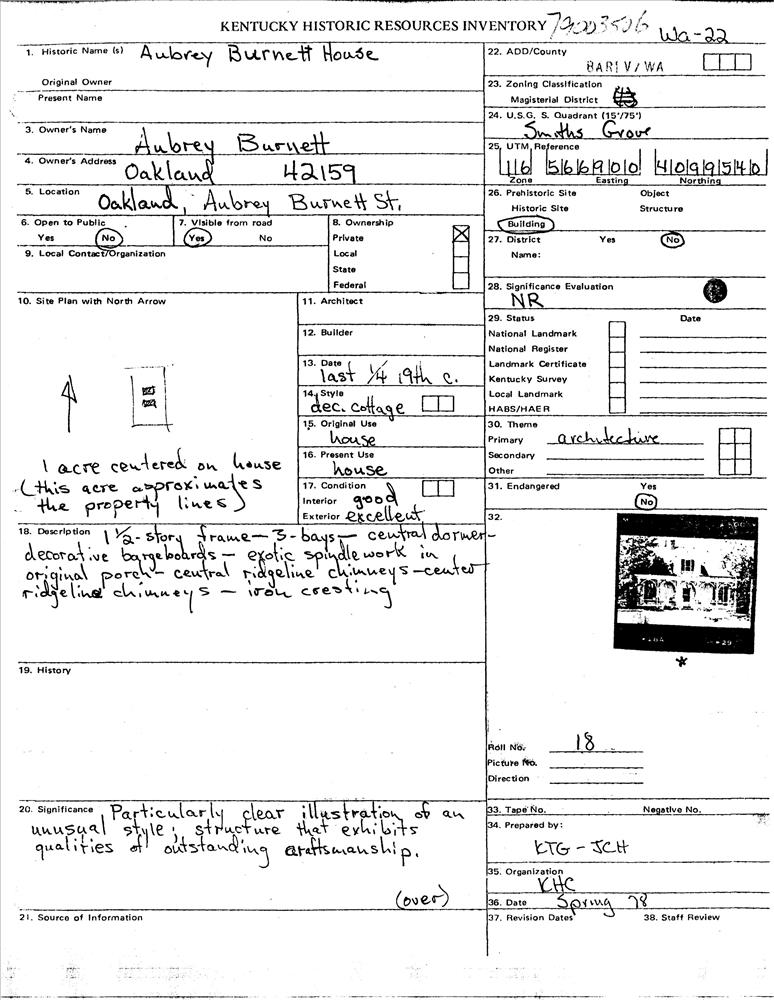 KENTUCKY HISTORIC RESOURCES INVENTORY 79003506 Wa-22
1. Historic Name (s) Aubrey Burnett House
Original Owner
Present Name
3. Owner's Name
Aubrey Burnett
4. Owner's Address Oakland 42159
5. Location Oakland, Aubrey Burnett St.
6. Open to Public
Yes No
7. Visible from road
Yes No
8. Ownership
Private
Local
State
Federal
9. Local Contact/Organization
10. Site Plan with North Arrow
1 acre centered on house
(this acre approximates
the property lines)
11. Architect
12. Builder
13. Date
last 1/4 19th c.
14. Style
dec. cottage
15. Original Use
house
16. Present Use
house
17. Condition
Interior good
Exterior excellent
18. Description 1 1/2-story frame - 3-bays - central dormer-
decorative bargeboards - exotic spindlework in
original porch - central ridgeline chimneys-center
ridgeline chimneys - iron cresting
19. History
20. Significance Particularly clear illustration of an
unusual style; structure that exhibits
qualities of outstanding craftsmanship.
(over)
21. Source of Information
22. ADD/County
BARIV/WA
23. Zoning Classification
Magisterial District
24. U.S.G. S. Quadrant (15'/75')
Smiths Grove
25. UTM Reference
16 566900 4099540
Zone Easting Northing
26. Prehistoric Site Object
Historic Site Structure
Building
27. District Yes No
Name:
28. Significance Evaluation
NR
29. Status Date
National Landmark
National Register
Landmark Certificate
Kentucky Survey
Local Landmark
HABS/HAER
30. Theme
Primary architecture
Secondary
Other
31. Endangered Yes
No
32.
*
Roll No. 18
Picture No.
Direction
33. Tape No. Negative No.
34. Prepared by:
KTG - JCH
35. Organization
KHC
36. Date Spring 78
37. Revision Dates 38. Staff Review